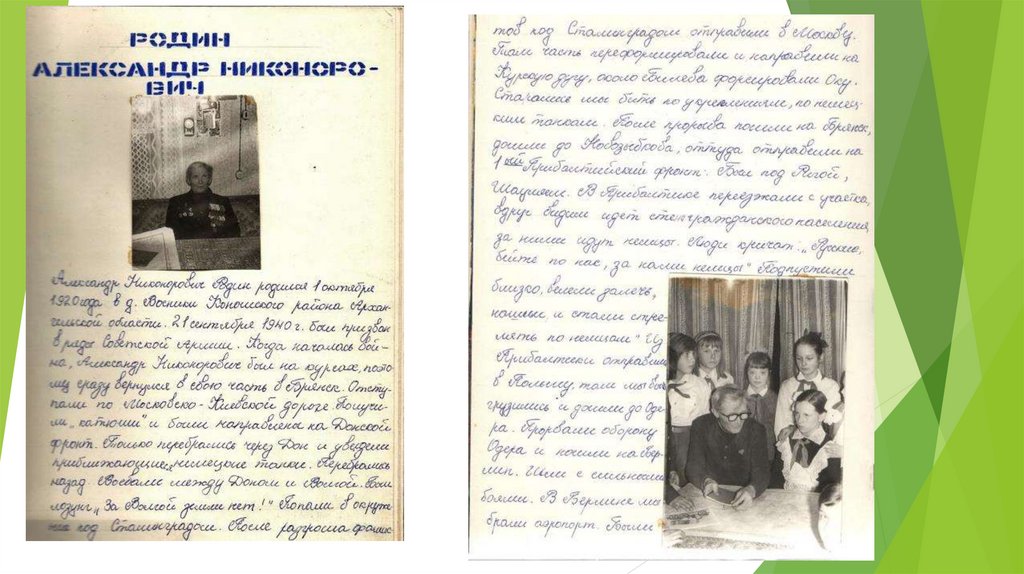 РОДИН
АЛЕКСАНДР НИКОНОРО-
ВИЧ
Александр Никонорович Родин родился 1 октября
1920 года в д. Восники Коношского района Архан-
гельской области. 21 сентября 1940 г. был призван
в ряды Советской Армии. Когда началась вой-
на, Александр Никонорович был на курсах, пото-
му сразу вернулся в свою часть в Брянск. Отсту-
пали по Московско-Киевской дороге. Получи-
ли "катюши" и были направлены на Донской
фронт. Только перебрались через Дон и увидели
приближающиеся немецкие танки. Перебрались
назад. Воевали между Доном и Волгой. Был
лозунг "За Волгой земли нет!" Попали в окру-
под Сталинградом. После разгрома фашис-
тов под Сталинградом отправили в Москву.
Там часть переформировали и направили на
Курскую дугу, около формировали Оку.
Старались мы бить по укреплениям, по немец-
ким танкам. После прорыва пошли на Брянск,
дошли до Новозыбкова, оттуда отправили на
1ый Прибалтийский фронт. Бои под Ригой,
Шауляем. В Прибалтике переезжали с участка,
вдруг видим идет стена гражданского населения,
за ними идут немцы. Люди кричат: "Русские,
бейте по нас, за нами немцы" Подпустили
близко, велели залечь,
нашим и стали стре-
лять по немцам". Из
Прибалтики отправили
в Польшу, там мы вы-
грузились и дошли до Оде-
ра. Прорвали оборону
Одера и пошли на Бер-
лин. Шли с сильными
боями. В Берлине мы
брали аэропорт. Были